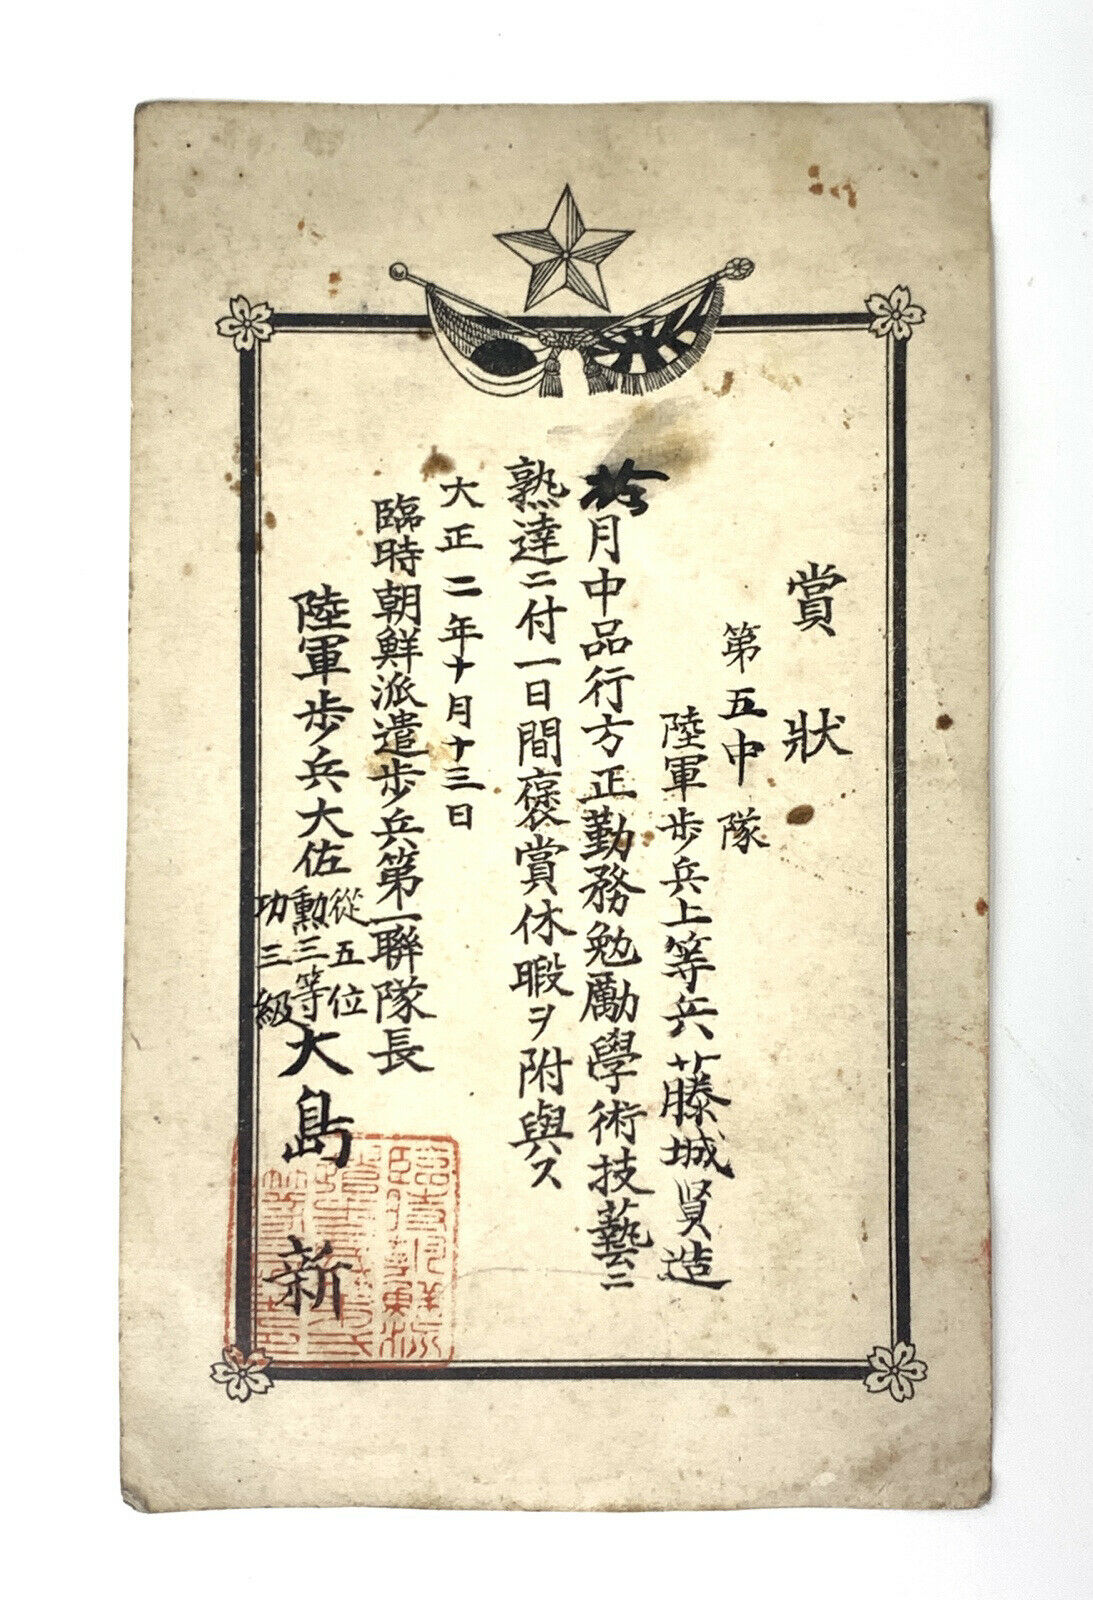 賞狀
第五中隊
陸軍歩兵上等兵藤城賢造
拾月中品行方正勤務勉勵學術技藝ニ
熟達ニ付一日間褒賞休暇ヲ附與ス
大正二年十月十三日
臨時朝鮮派遣歩兵第一聯隊長
陸軍歩兵大佐
從五位
勳三等
功三級
大島新